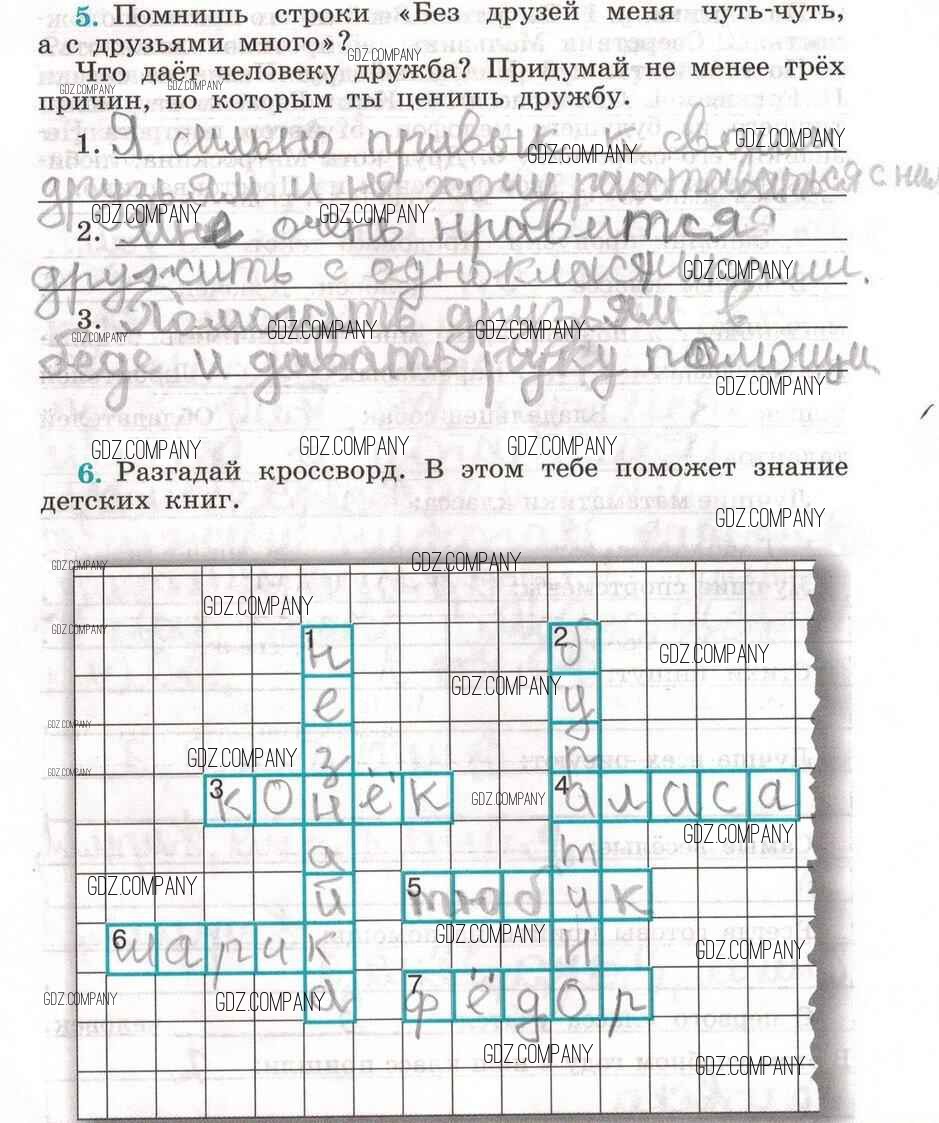 5. Помнишь строки «Без друзей меня чуть-чуть,
а с друзьями много»?
Что даёт человеку дружба? Придумай не менее трёх
причин, по которым ты ценишь дружбу.
1. Я сильно привык к своим
друзьям и не хочу расставаться с ними
2. Мне очень нравится
дружить с одноклассниками.
3. Помогать друзьям в
беде и давать руку помощи
6. Разгадай кроссворд. В этом тебе поможет знание
детских книг.
1 2
н б
е у
з р
3 конёк 4 аласа
а т
й 5 тюбик
6 шарик н
а 7 фёдор
GDZ.COMPANY